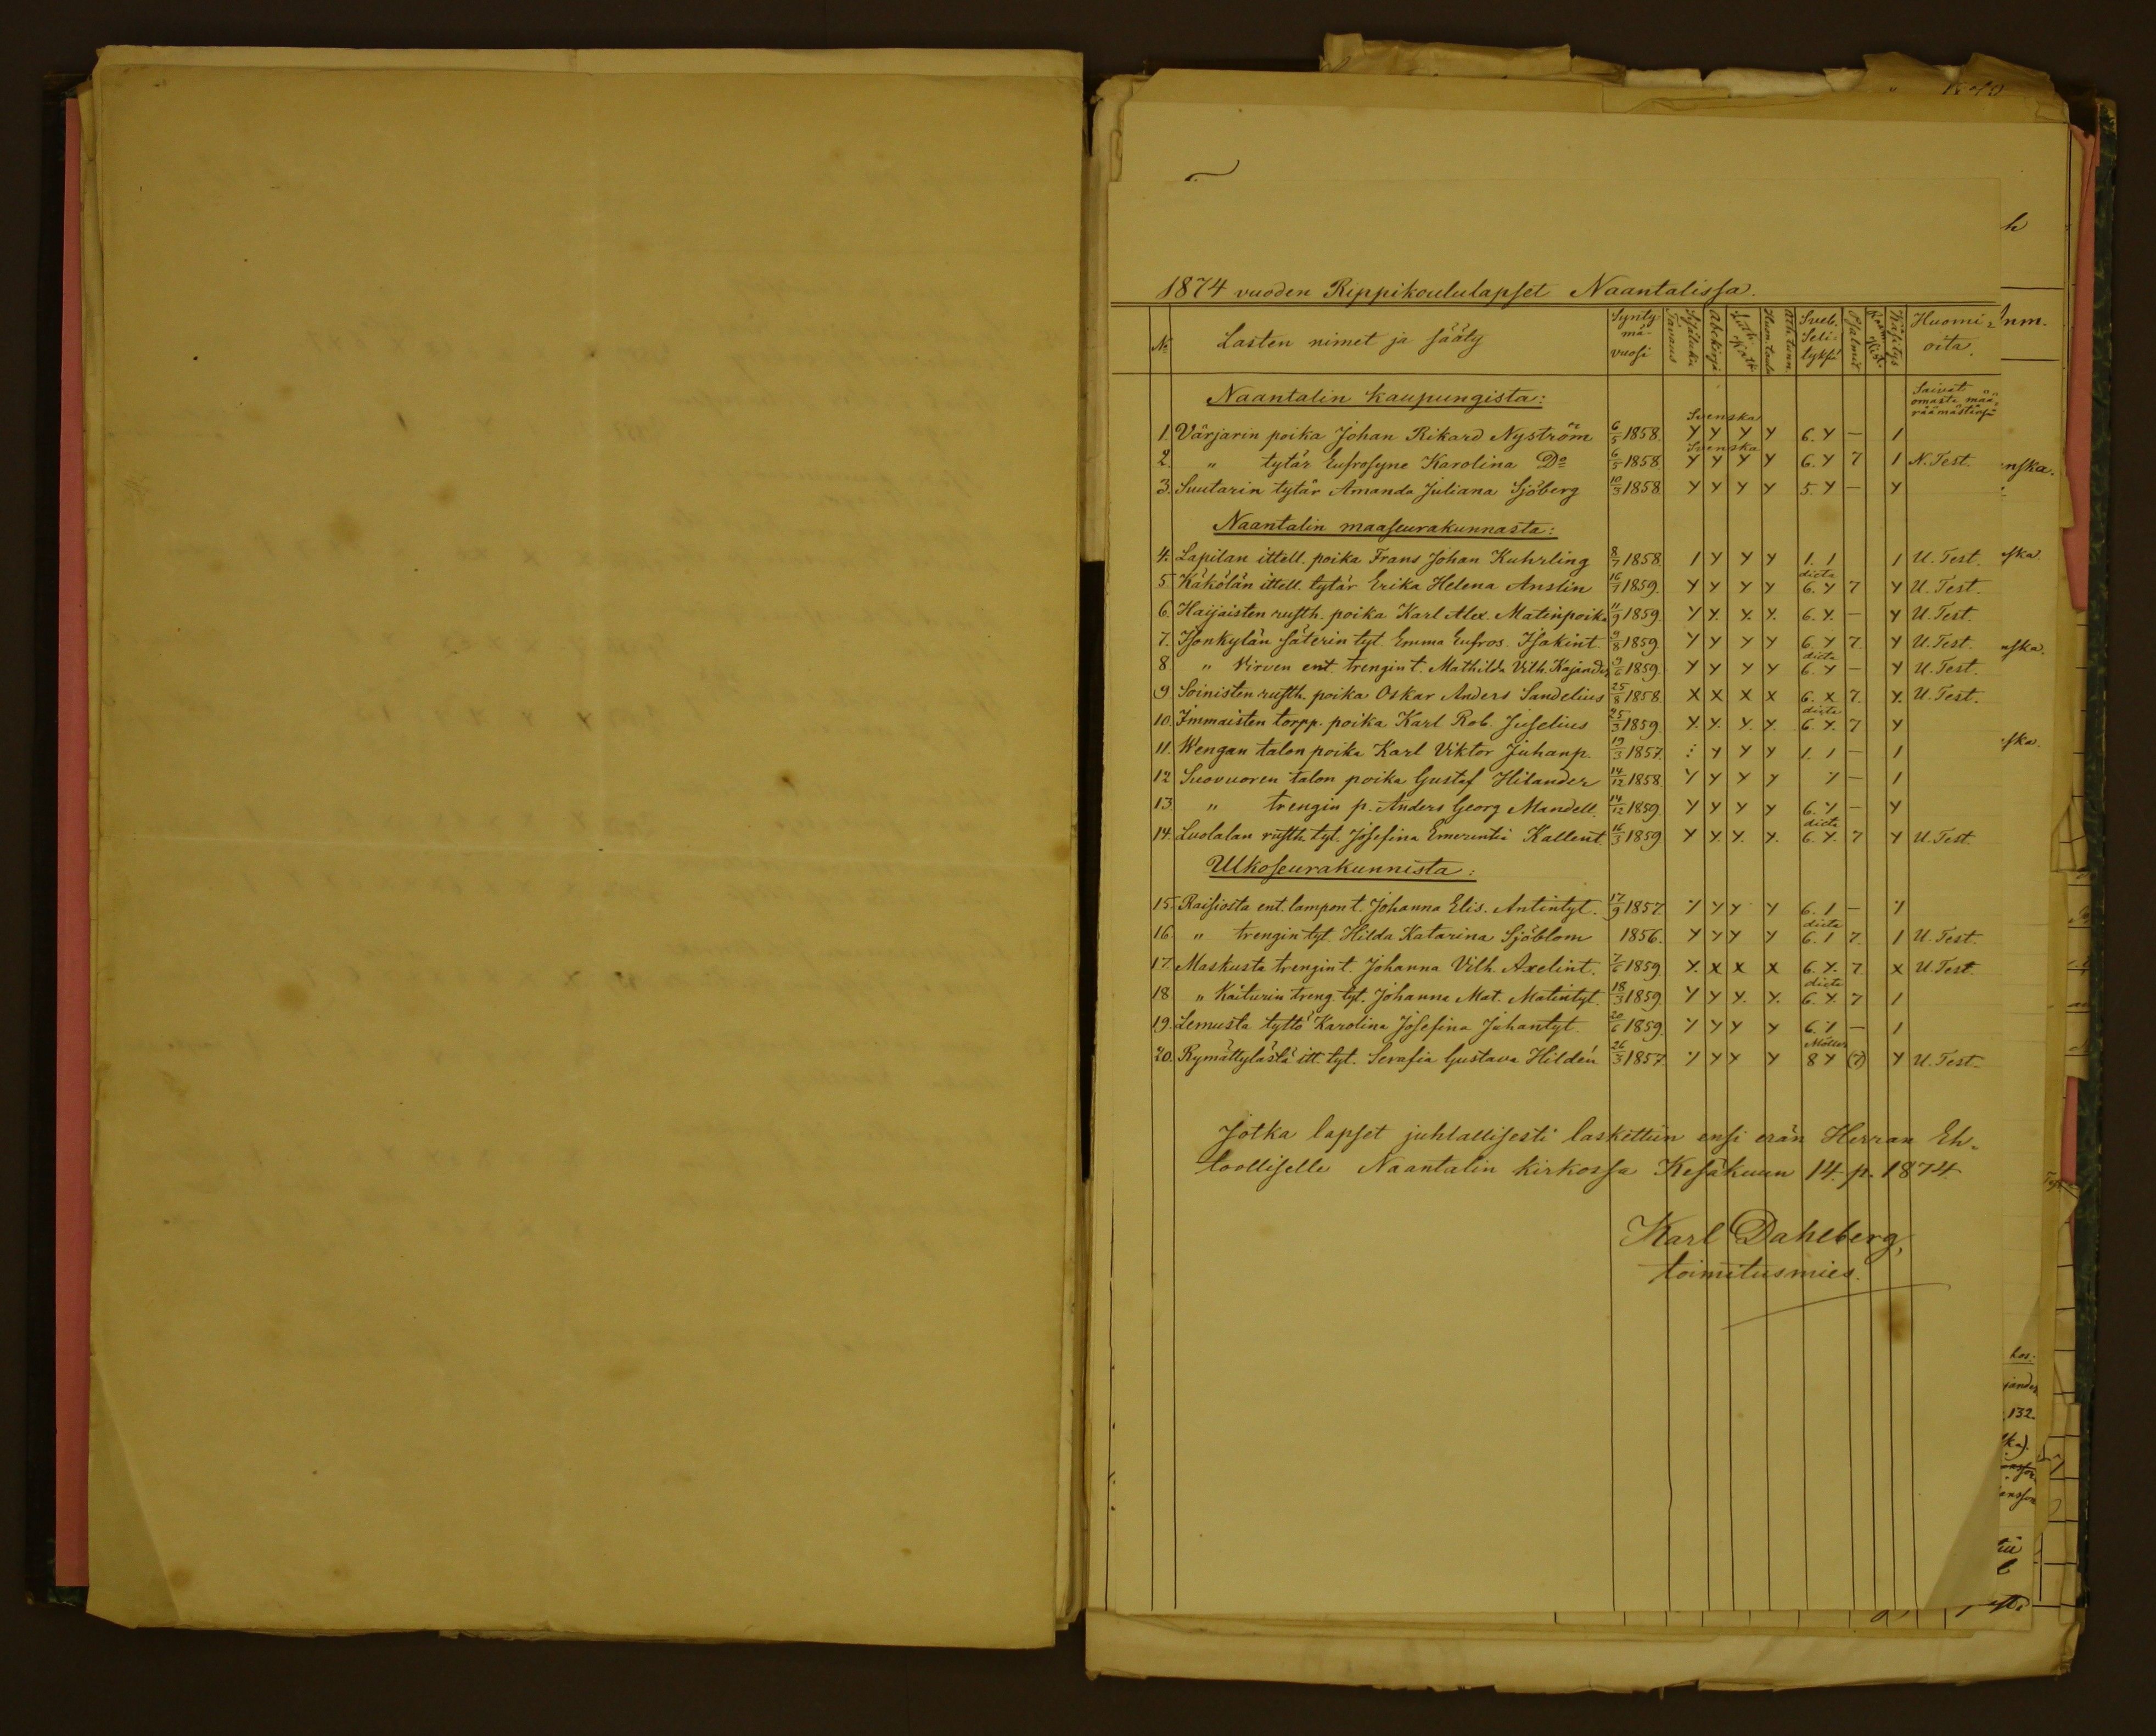 1874 vuoden Rippikoululapset Naantalissa.
No Lasten nimet ja sääty Syntymä-vuosi Tavaus Sisäluku Abckirja Luth. Kat. Huon.taulu Ath. tunn. Sveb. Selityksiä Psalmit Käsitys Huomioita.
Naantalin kaupungista: Saivat omasta määräämästäsä
Svenska
1. Värjarin poika Johan Rikard Nyström 6/5 1858. Y Y Y Y 6. Y — 1
Svenska
2. " tytär Eufrosyne Karolina Do 6/5 1858 Y Y Y Y 6. Y 7 1 N. Test.
3. Suutarin tytär Amanda Juliana Sjöberg 10/3 1858 Y Y Y Y 5. Y — Y
Naantalin maaseurakunnasta:
4. Lapilan ittell. poika Frans Johan Kuhrling 8/7 1858. 1 Y Y Y 1. 1 1 U. Test.
dicta
5. Käkölän ittell. tytär Erika Helena Anslin 16/7 1859. Y Y Y Y 6. Y 7 Y U. Test.
6. Haijaisten rusth. poika Karl Alex. Matinpoika 11/9 1859. Y Y. Y. Y. 6. Y. — Y U. Test.
7. Isonkylän säterin tyt. Emma Eufros. Isakint. 9/8 1859. Y Y Y Y 6. Y 7. Y U. Test.
dicta
8 " Virven ent. trengin t. Mathilda Vilh. Kajander 9/6 1859. Y Y Y Y 6. Y — Y U. Test.
9 Soinisten rusth. poika Oskar Anders Sandelius 25/8 1858. X X X X 6. X 7. Y. U. Test.
dicta
10. Immaisten torpp. poika Karl Rob. Juselius 25/3 1859. Y. Y. Y. Y. 6. Y. 7 Y
11. Wengan talon poika Karl Viktor Juhanp. 19/3 1857. : Y Y Y 1. 1 — 1
12 Suovuoren talon poika Gustaf Hilander 14/12 1858 Y Y Y Y Y — 1
13 " trengin p. Anders Georg Mandell. 14/12 1859. Y Y Y Y 6. Y — Y
dicta
14. Luolalan rusth. tyt. Josefina Emerentia Kallent. 16/3 1859 Y Y. Y. Y. 6. Y. 7 Y U. Test.
Ulkoseurakunnista:
15. Raisiosta ent. lampon t. Johanna Elis. Antintyt. 17/9 1857. Y Y Y Y 6. 1 — Y
dicta
16. " trengin tyt. Hilda Katarina Sjöblom 1856. Y Y Y Y 6. 1 7. 1 U. Test.
17. Maskusta trengin t. Johanna Vilh. Axelint. 7/6 1859. Y. X X X 6. Y. 7. X U. Test.
dicta
18 " Kaiturin treng. tyt. Johanna Mat. Matintyt. 18/3 1859 Y Y Y. Y. 6. Y. 7 1
19. Lemusta tyttö Karolina Josefina Juhantyt. 20/6 1859. Y Y Y Y 6. Y — 1
20. Rymättylästä itt. tyt. Serafia Gustava Hildén 26/3 1857. Y Y Y Y 8 Y (7) Y U. Test.
Jotka lapset juhlallisesti laskettiin ensi erän Herran Eh-
toolliselle Naantalin kirkossa Kesäkuun 14. p. 1874.
Karl Dahlberg,
toimitusmies.
nska.
132.